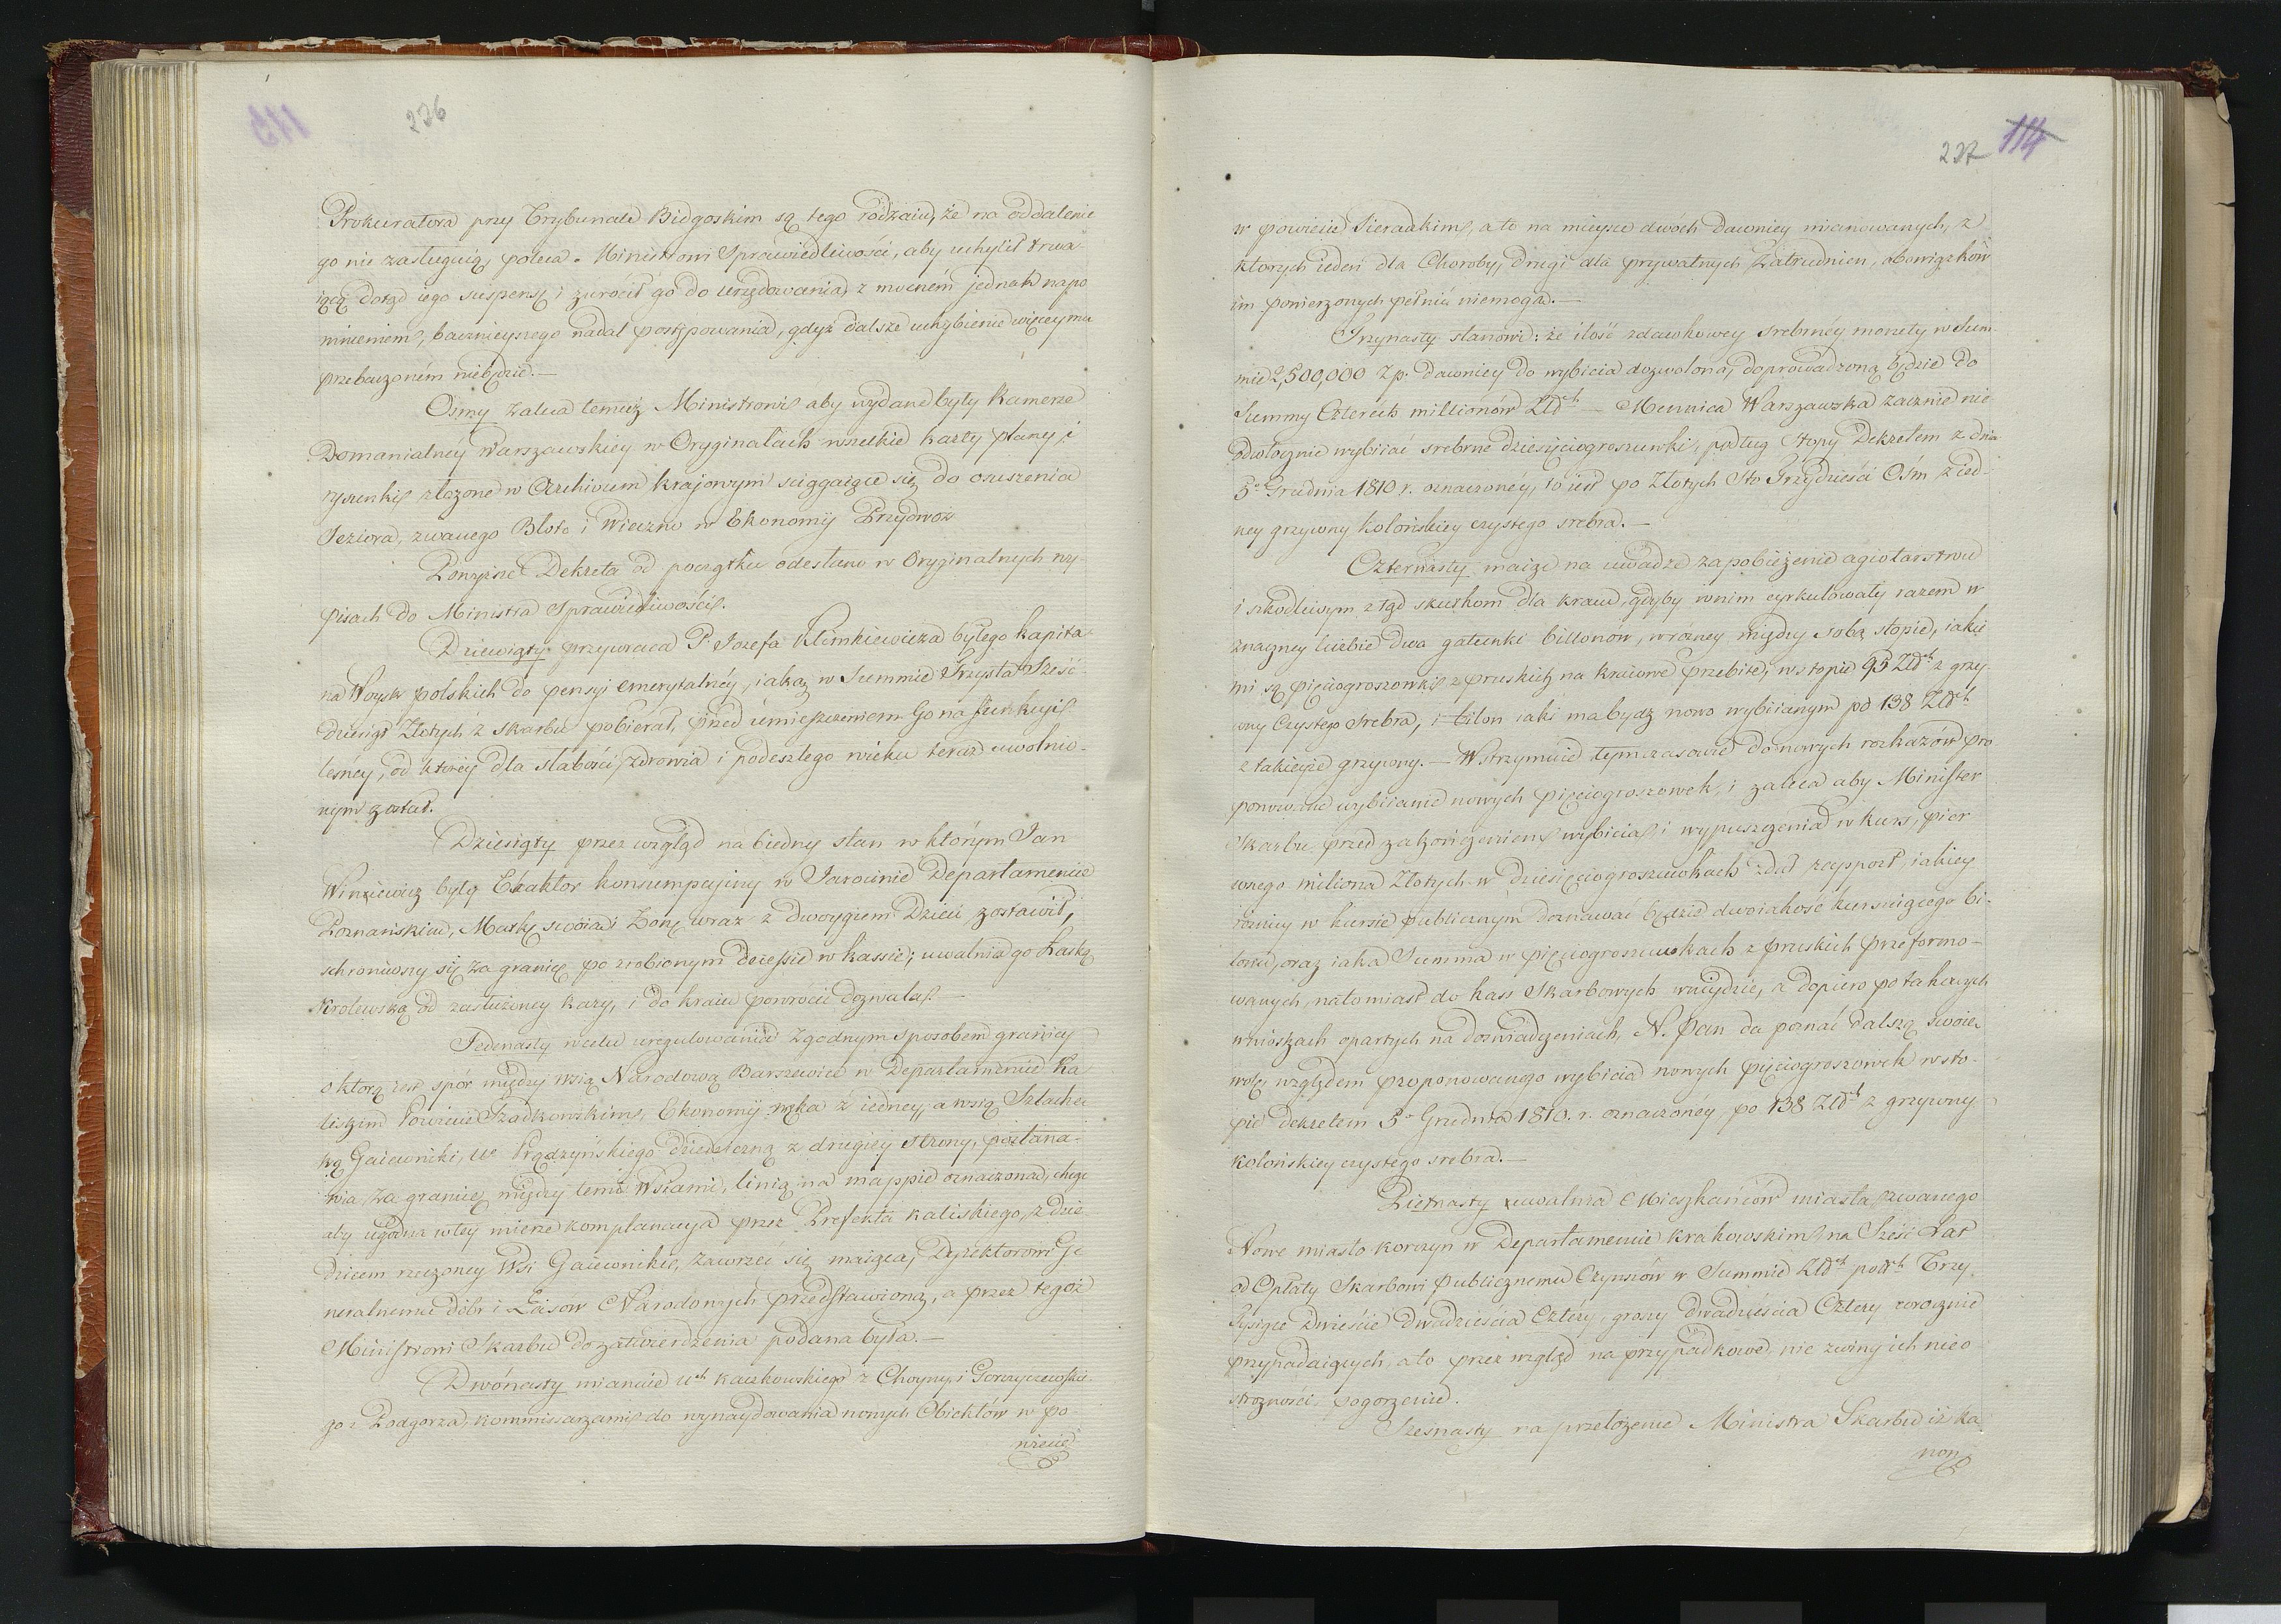 226
Prokuratora przy Trybunale Bidgoskim są tego rodzaiu, że na oddalenie
go nie zasługuią, poleca Ministrowi Sprawiedliwości, aby uchylił trwa
iącą dotąd iego suspensę i zwrócił go do urzędowania, z mocném jednak napo
mnieniem, bacznieyszego nadal postępowania, gdyż dalsze uchybienie więcey mu
przebaczoném niebędzie.—
Osmy zaleca temuż Ministrowi aby wydane były Kamerze
Domanialnéy Warszawskiey w Oryginałach wszelkie karty plany i
rysunki złożone w Archiwum krajowym ściągaiące się do osuszenia
Jeziora, zwanego Błoto i Wieczno w Ekonomij Przydwoż
Ponyższe Dekreta od początku odesłano w Oryginalnych wy-
pisach do Ministra Sprawiedliwości.
Dziewiąty przywraca P. Jozefa Klimkiewicza byłego kapita
na Woysk polskich do pensyi emerytalnéy, iaką w Summie Trzysta Sześć
dziesiąt Złotych z skarbu pobierał, przed umieszczeniem Go na funkcyi
leśney, od którey dla słabości zdrowia i podeszłego wieku teraz uwolnio-
nym został.
Dziesiąty przez wzgląd na biedny stan w którym Jan
Winkiewicz były Exaktor konsumpcyiny w Jarocinie Departamencie
Poznańskim, Matkę swoią i Żonę wraz z dwoygiem Dzieci zostawił,
schroniwszy się za granicę po zrobionym decessie w kassie; uwalnia go Łaską
Krolewską od zasłużoney kary, i do kraiu powrócić dozwala.—
Jedenasty w celu uregulowania zgodnym sposobem granicy
o którą iest spór między wsią Narodową Barszewice w Departamencie Ka
liskim Powiecie Szadkowskim, Ekonomij męka z iedney, a wsią Szlachec
ką Gaiewniki, Ur Prądzyńskiego dziedziczną z drugiey strony, postana-
wia, za granicę między temi Wsiami, linią na mappie oznaczoną, chcąc
aby ugodna w tey mierze komplanacya przez Prefekta kaliskiego, z dzie
dzicem rzeczoney Wsi Gaiewniki, zawrzeć się maiąca, Dyrektorowi Ge
neralnemu dóbr i Lasow Narodowych przedstawioną, a przez tegoż
Ministrowi Skarbu do zatwierdzenia podana była.—
Dwónasty mianuie Uch Kaczkowskiego z Choyny, i Gorczyczewskie
go z Podgorza, kommissarzami do wynaydowania nowych Obiektów w po-
wiecie
227 114
w powiecie Sieradzkim, a to na mieysce dwóch dawniey mianowanych, z
ktorych ieden dla Choroby, drugi dla prywatnych Zatrudnien, obowiązków
im powierzonych pełnić niemogą.—
Trzynasty stanowi: że ilość zdawkowey srebrnéy monety w Sum-
mie 2,500,000 Zp. dawniey do wybicia dozwolona, doprowadzoną będzie do
Summy Czterech millionów Złdch — Mennica Warszawska zacznie nie
odwłocznie wybiiać srebrne dziesięciogroszówki, podług Stopy Dekretem z dnia
5o Grudnia 1810 r. oznaczoney, to iest po Złotych Sto Trzydzieści Ośm z ied-
ney grzywny kolońskiey czystego srebra.—
Czternasty maiąc na uwadze zapobieżenie agiotarstwu
i szkodliwym ztąd skutkom dla kraiu, gdyby w nim cyrkulowały razem w
znaczney liczbie dwa gatunki billonów, w rozney między sobą stopie, iakie
mi są pięciogroszówki z pruskich na kraiowe przebite, w stopie 95 Złdch z grzy-
wny Czystego Srebra, i bilon iaki ma bydz nowo wybiianym po 138 Złdch
z takieyże grzywny.— Wstrzymuie tymczasowie do nowych rozkazów pro
ponowane wybiianie nowych pięciogroszowek, i zaleca aby Minister
Skarbu przed zakończeniem wybicia, i wypuszczenia w kurs, pier
wszego miliona Złotych w dziesięciogroszówkach zdał rapport, iakiey
różnicy w kursie publicznym doznawać będzie dwoiakość kursuiącego bi-
lonu, oraz iaka Summa w pięciogroszówkach z pruskich przeformo-
wanych, natomiast do kass Skarbowych wniydzie, a dopiero po takowych
wnioskach opartych na doświadczeniach, N. Pan da poznać dalszą swoię
wolę względem proponowanego wybicia nowych pięciogroszowek w sto-
pie dekretem 5o Grudnia 1810. r. oznaczonéy, po 138 Złdch z grzywny
kolońskiey czystego srebra.—
Piętnasty uwalnia Mieszkańców miasta, zwanego
Nowe miasto korczyn w Departamencie krakowskim na Sześć Lat
od Opłaty Skarbowi publicznemu Czynszów w Summie Złdch polch Trzy
tysiące Dwieście Dwadzieścia Cztery, groszy dwadzieścia Cztery corocznie
przypadaiących, a to przez wzgląd na przypadkowe, nie z winy ich nieo
strozności, pogorzenie.
Szesnasty na przełożenie Ministra Skarbu iż ka
non